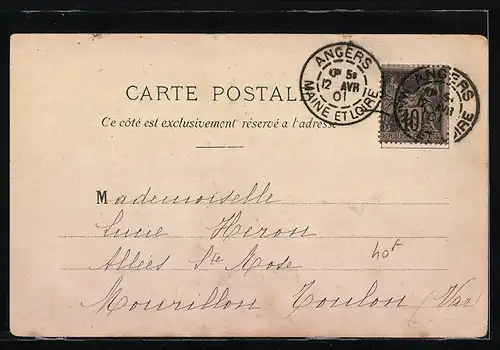 ANGERS
5E
12 AVR
01
MAINE ET LOIRE
ANGERS
10
CARTE POSTAL
Ce côté est exclusivement réservé a l'adresse
Mademoiselle
Lucie Héron
Allées Ste Rose
40f
Mourillon Toulon (Var)